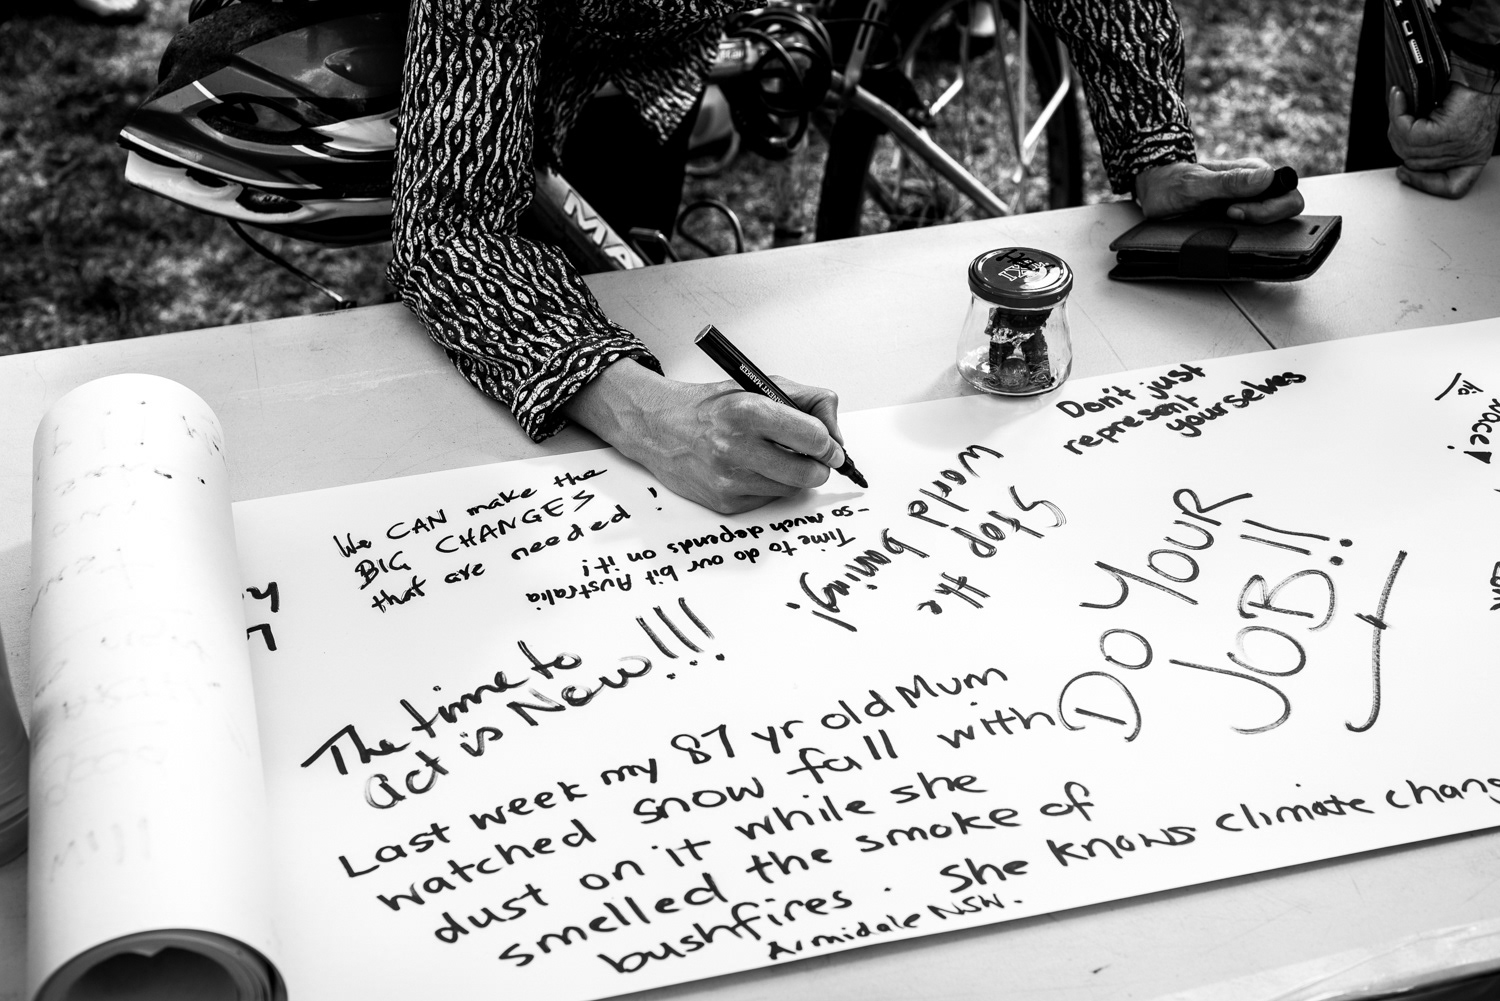 We CAN make the
BIG CHANGES
that are needed!
Time to do our bit Australia
- so much depends on it!
Stop
the
World
baning!
Don't just
represent
yourselves
DO YOUR
JOB!!!
The time to
act is Now!!!!
Last week my 87 yr old Mum
watched snow fall with
dust on it while she
smelled the smoke of
bushfires. She knows climate chang
Armidale NSW.
MA